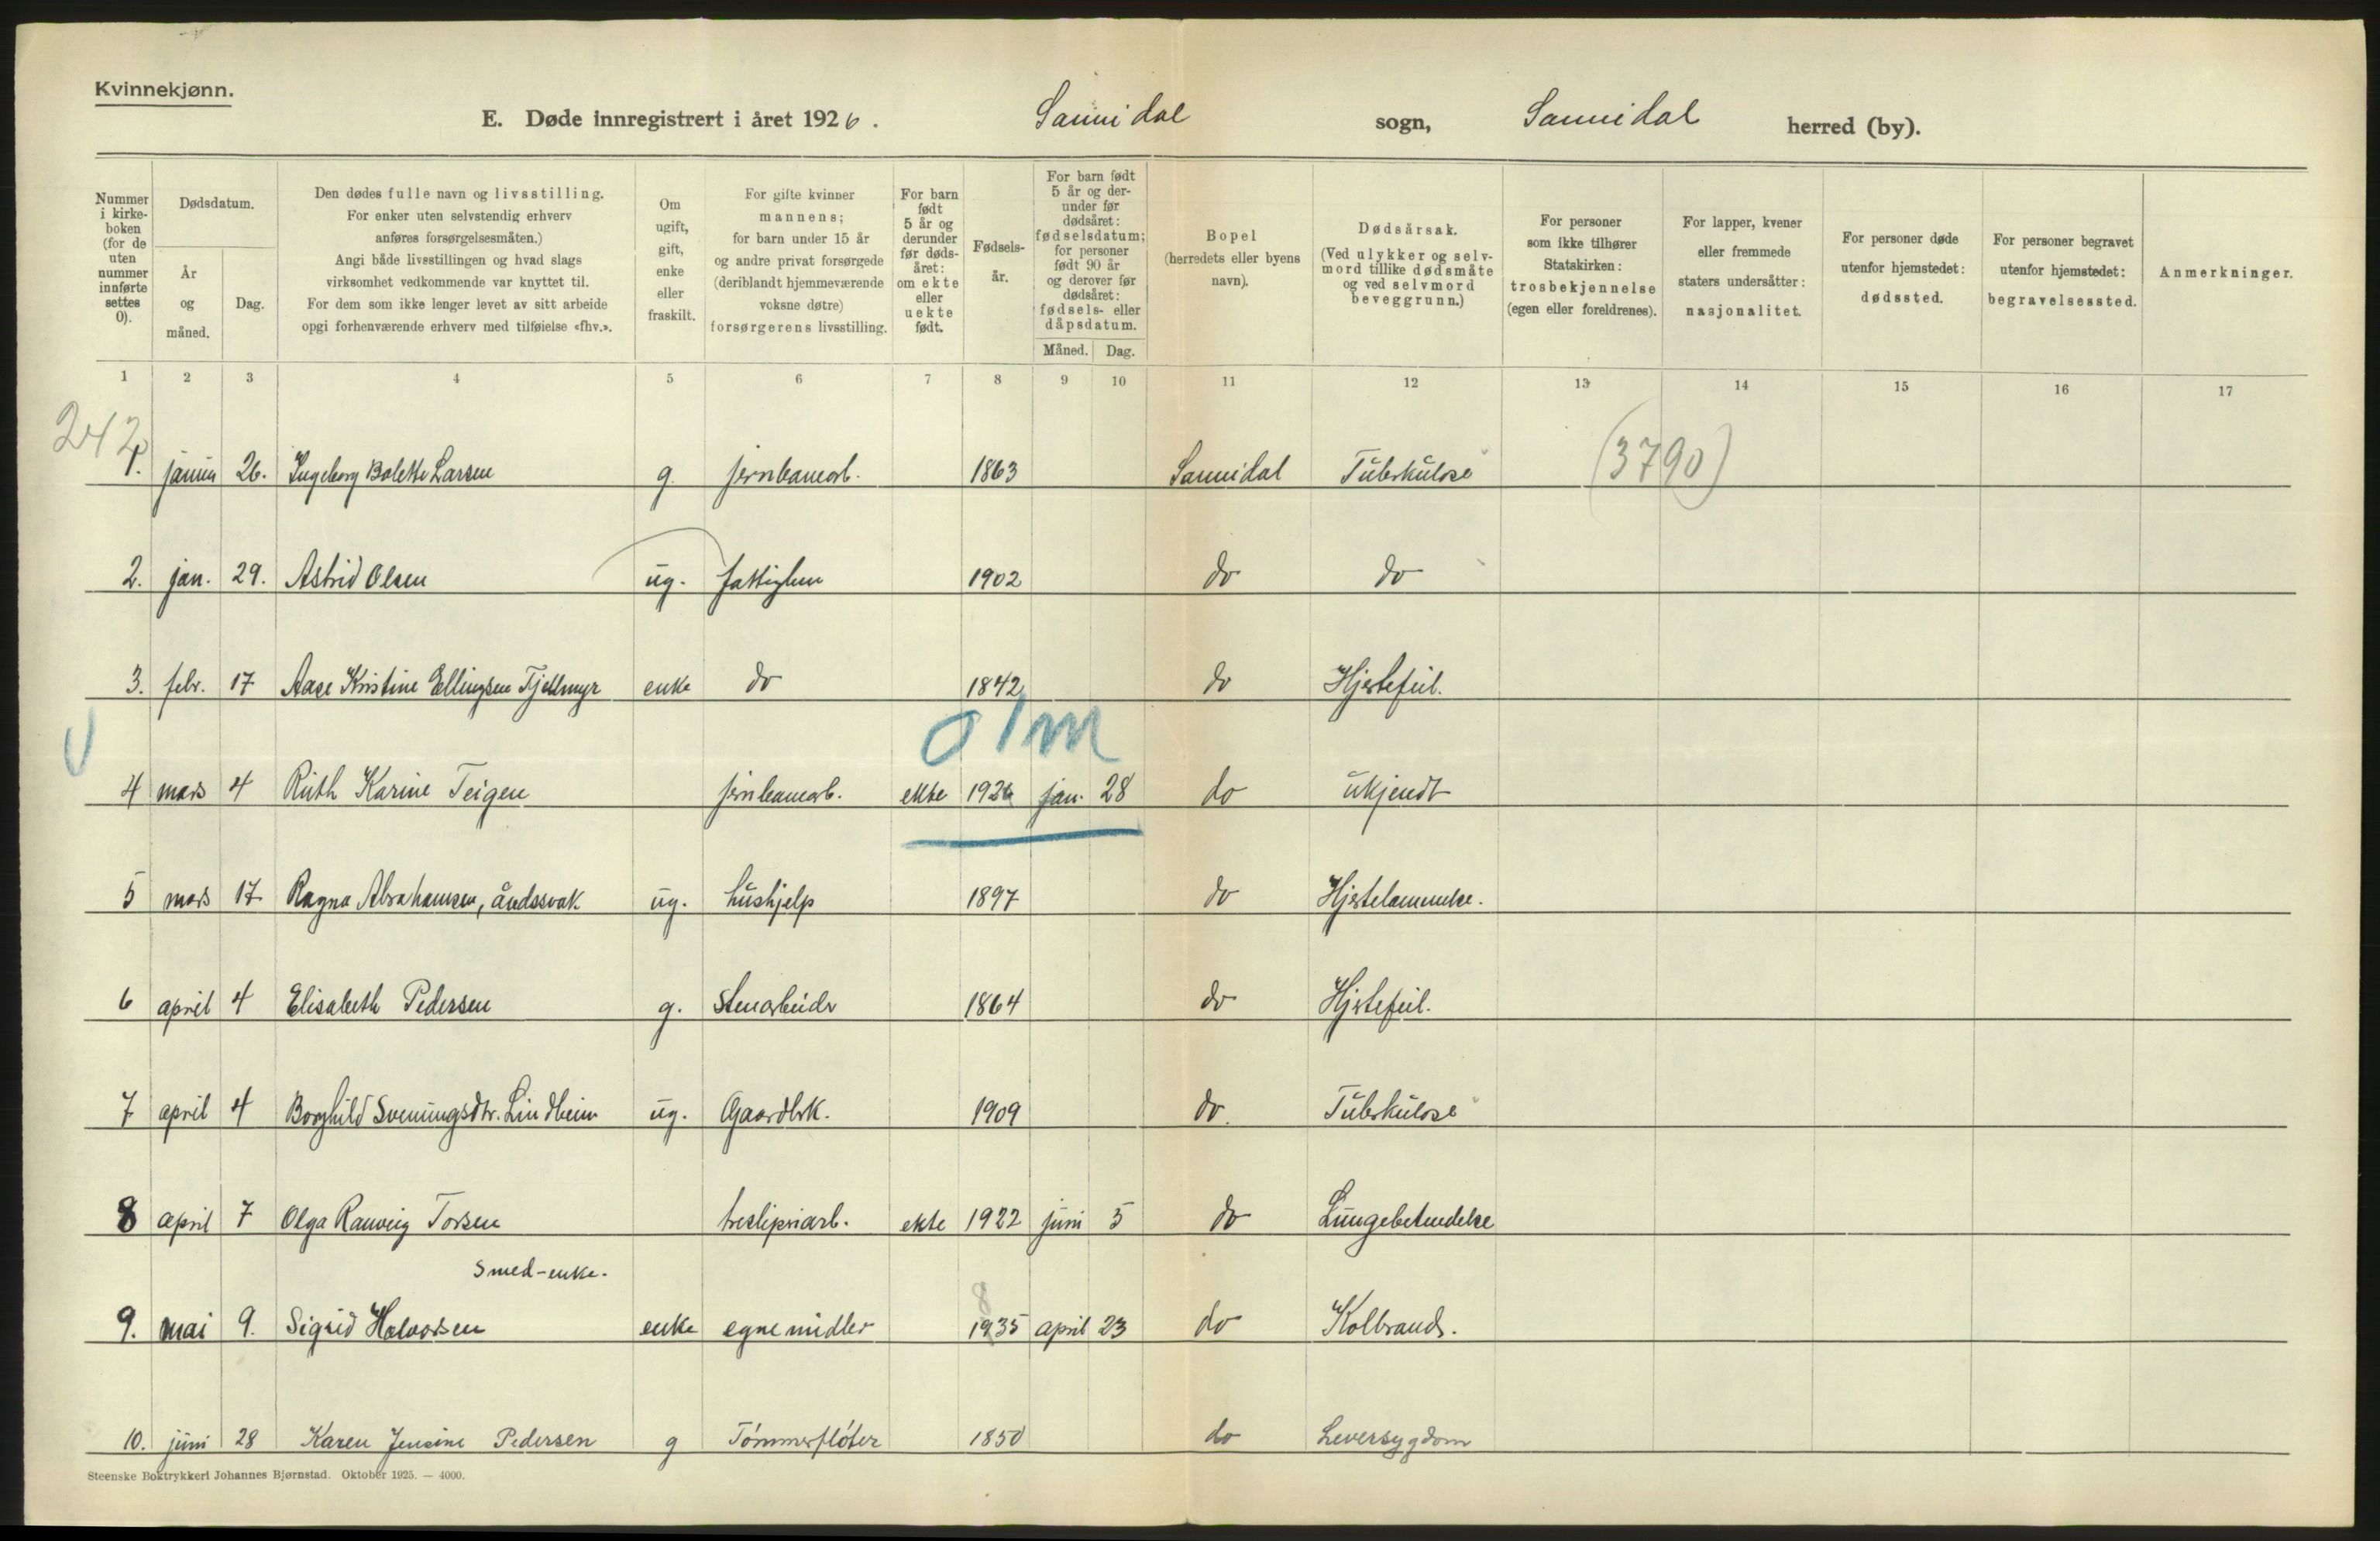 Kvinnekjønn.
E. Døde innregistrert i året 1926. Sannidal sogn, Sannidal herred (by).
Nummer i kirkeboken (for de uten nummer innførte settes 0).
Dødsdatum.
År og måned.
Dag.
Den dødes fulle navn og livsstilling.
For enker uten selvstendig erhverv
anføres forsørgelsesmåten.)
Angi både livsstillingen og hvad slags
virksomhet vedkommende var knyttet til.
For dem som ikke lenger levet av sitt arbeide
opgi forhenværende erhverv med tilføielse «fhv.».
Om ugift, gift, enke eller fraskilt.
For gifte kvinner
mannens;
for barn under 15 år
og andre privat forsørgede
(deriblandt hjemmeværende
voksne døtre)
forsørgerens livsstilling.
For barn født 5 år og derunder før dødsåret: om ekte eller uekte født.
Fødselsår.
For barn født 5 år og derunder før dødsåret: fødselsdatum; for personer født 90 år og derover før dødsåret: fødsels- eller dåpsdatum.
Måned. Dag.
Bopel
(herredets eller byens
navn).
Dødsårsak.
(Ved ulykker og selvmord tillike dødsmåte og ved selvmord beveggrunn.)
For personer
som ikke tilhører
Statskirken:
trosbekjennelse
(egen eller foreldrenes).
For lapper, kvener
eller fremmede
staters undersåtter:
nasjonalitet.
For personer døde
utenfor hjemstedet:
dødssted.
For personer begravet
utenfor hjemstedet:
begravelsessted.
Anmerkninger.
1 2 3 4 5 6 7 8 9 10 11 12 13 14 15 16 17
242
1. januar 26. Ingeborg Bolette Larsen g. jernbanearb. 1863 Sannidal Tuberkulose (3790)
2. jan. 29. Astrid Olsen ug. fattiglem 1902 do do
3. febr. 17 Aase Kristine Ellingsen Tjellmyr enke do 1842 do Hjertefeil.
0 1m
4 mars 4 Ruth Karine Teigen jernbanearb. ekte 1926 jan. 28 do ukjendt
5 mars 17 Ragna Abrahamsen, åndssvak ug. hushjelp 1897 do Hjertelammelse.
6 april 4 Elisabeth Pedersen g. Stenarbeider 1864 do Hjertefeil.
7 april 4 Borghild Sveningsdtr. Lindheim ug. Gaardbrk. 1909 do. Tuberkulose
8 april 7 Olga Ranveig Torsen tresliperiarb. ekte 1922 juni 5 do Lungebetendelse
smed-enke.
8
9. mai 9. Sigrid Halvorsen enke egne midler 1935 april 23 do Kolbrand.
10. juni 28 Karen Jensine Pedersen g Tömmerflöter 1850 do Leversygdom
Steenske Boktrykkeri Johannes Bjørnstad. Oktober 1925. — 4000.